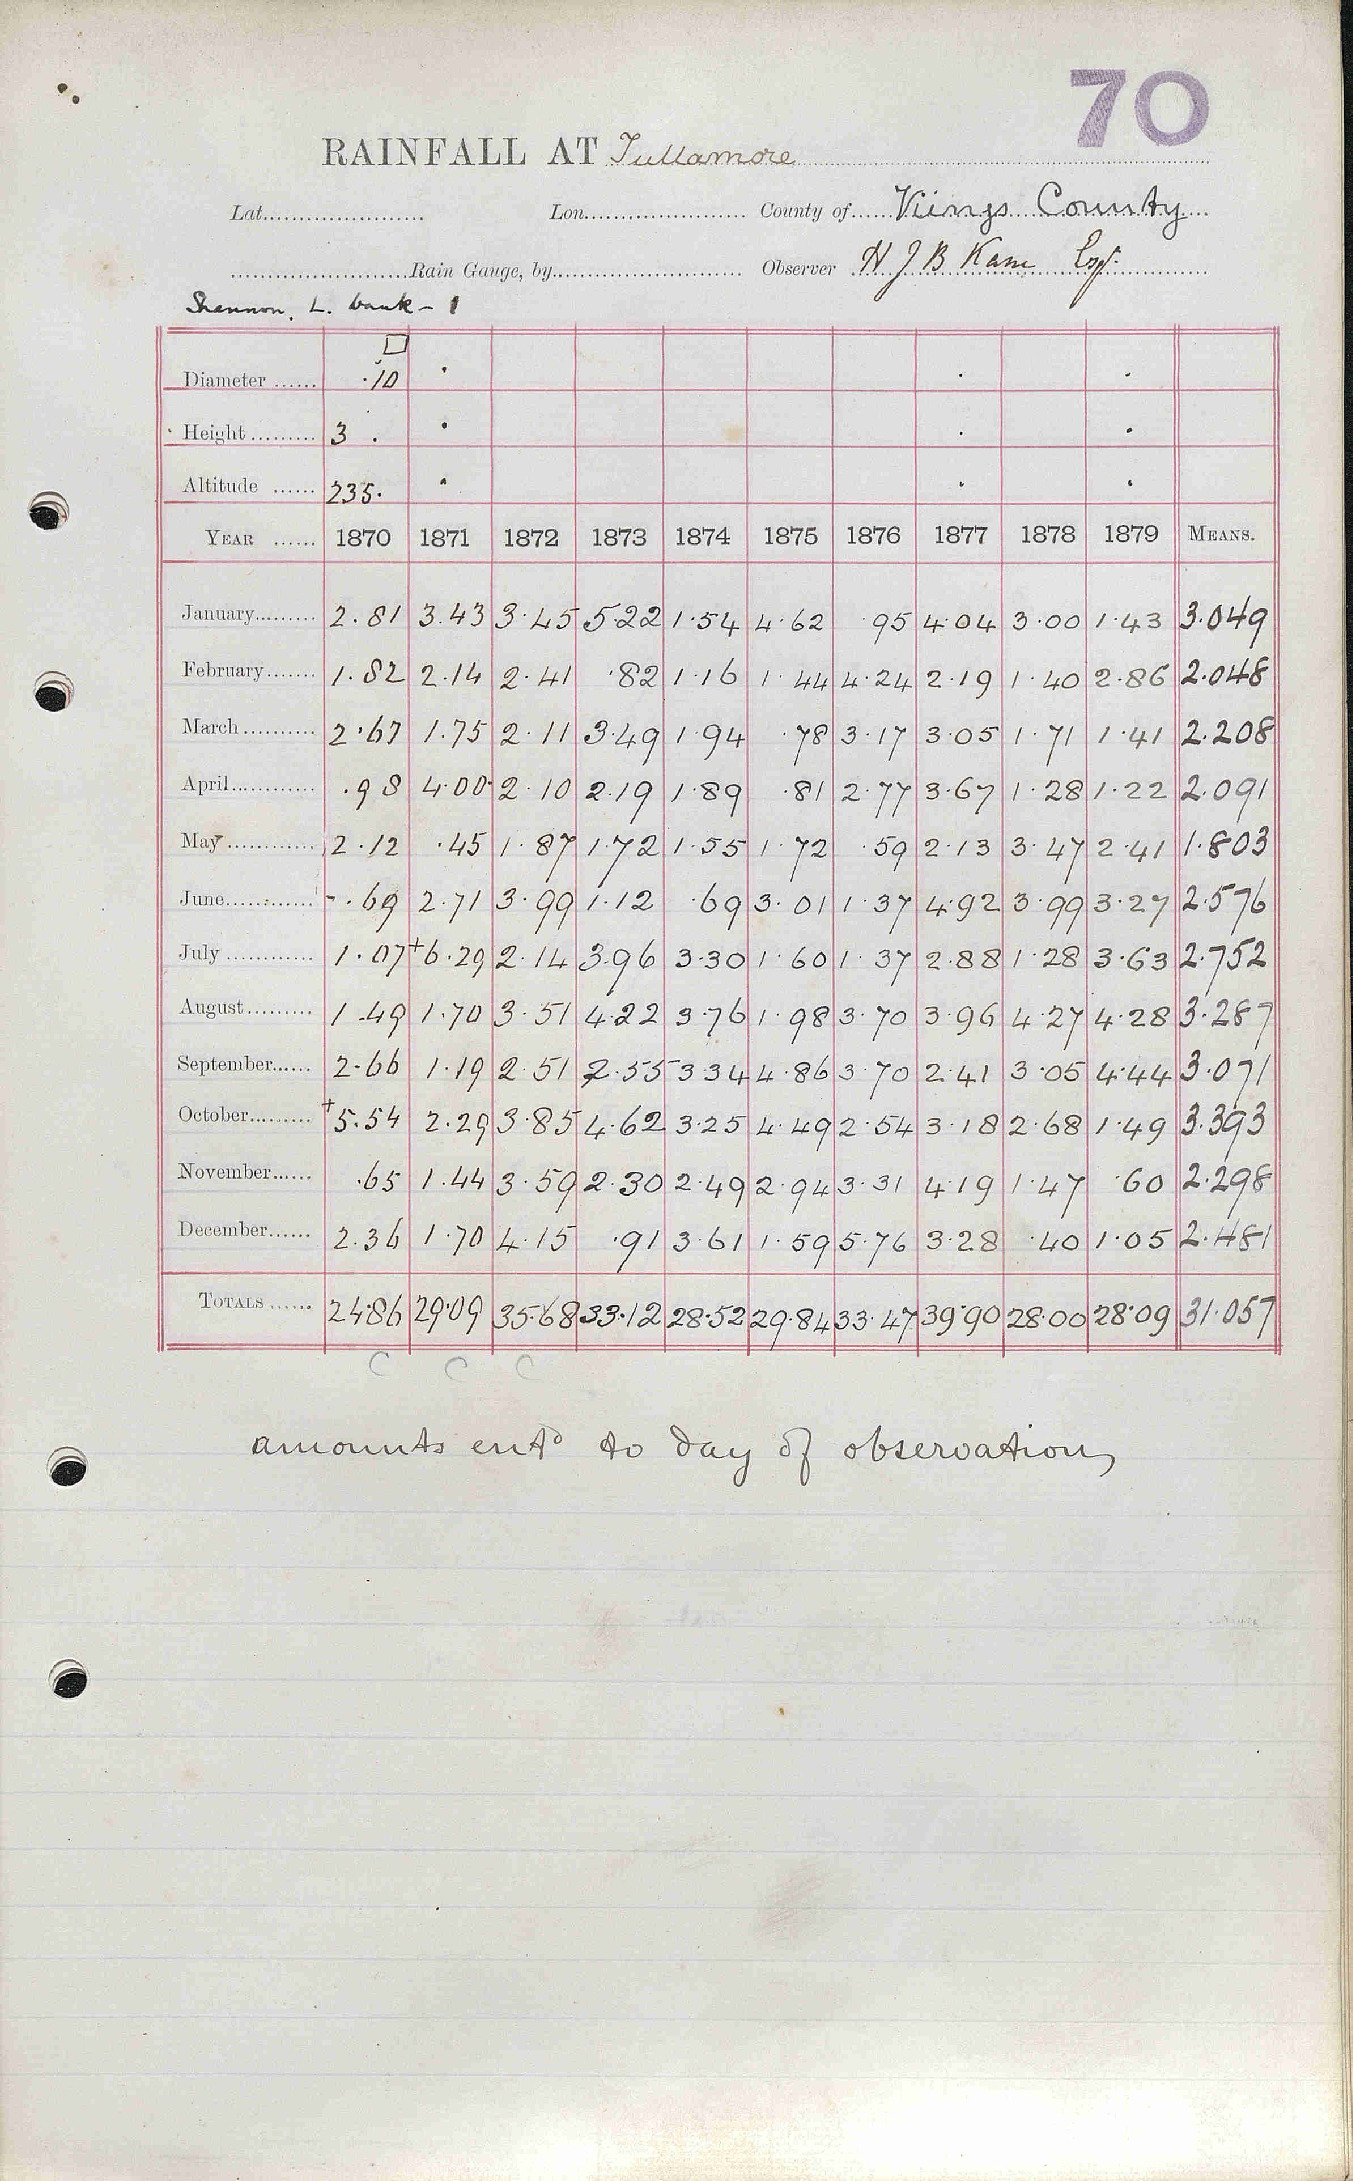 70
RAINFALL AT Tullamore
Lat. Lon. County of Kings County
Rain Gauge, by Observer H J B Kane Esq.
Shannon. L. bank - 1
Diameter ...... .10
Height ......... 3 .
Altitude ...... 235.
YEAR ...... 1870 1871 1872 1873 1874 1875 1876 1877 1878 1879 MEANS.
January 2.81 3.43 3.45 5.22 1.54 4.62 .95 4.04 3.00 1.43 3.049
February 1.82 2.14 2.41 .82 1.16 1.44 4.24 2.19 1.40 2.86 2.048
March 2.67 1.75 2.11 3.49 1.94 .78 3.17 3.05 1.71 1.41 2.208
April .98 4.00 2.10 2.19 1.89 .81 2.77 3.67 1.28 1.22 2.091
May 2.12 .45 1.87 1.72 1.55 1.72 .59 2.13 3.47 2.41 1.803
June .69 2.71 3.99 1.12 .69 3.01 1.37 4.92 3.99 3.27 2.576
July 1.07 +6.29 2.14 3.96 3.30 1.60 1.37 2.88 1.28 3.63 2.752
August 1.49 1.70 3.51 4.22 3.76 1.98 3.70 3.96 4.27 4.28 3.287
September 2.66 1.19 2.51 2.55 3.34 4.86 3.70 2.41 3.05 4.44 3.071
October +5.54 2.29 3.85 4.62 3.25 4.49 2.54 3.18 2.68 1.49 3.393
November .65 1.44 3.59 2.30 2.49 2.94 3.31 4.19 1.47 .60 2.298
December 2.36 1.70 4.15 .91 3.61 1.59 5.76 3.28 .40 1.05 2.481
TOTALS 24.86 29.09 35.68 33.12 28.52 29.84 33.47 39.90 28.00 28.09 31.057
C C C
amounts entd to day of observation